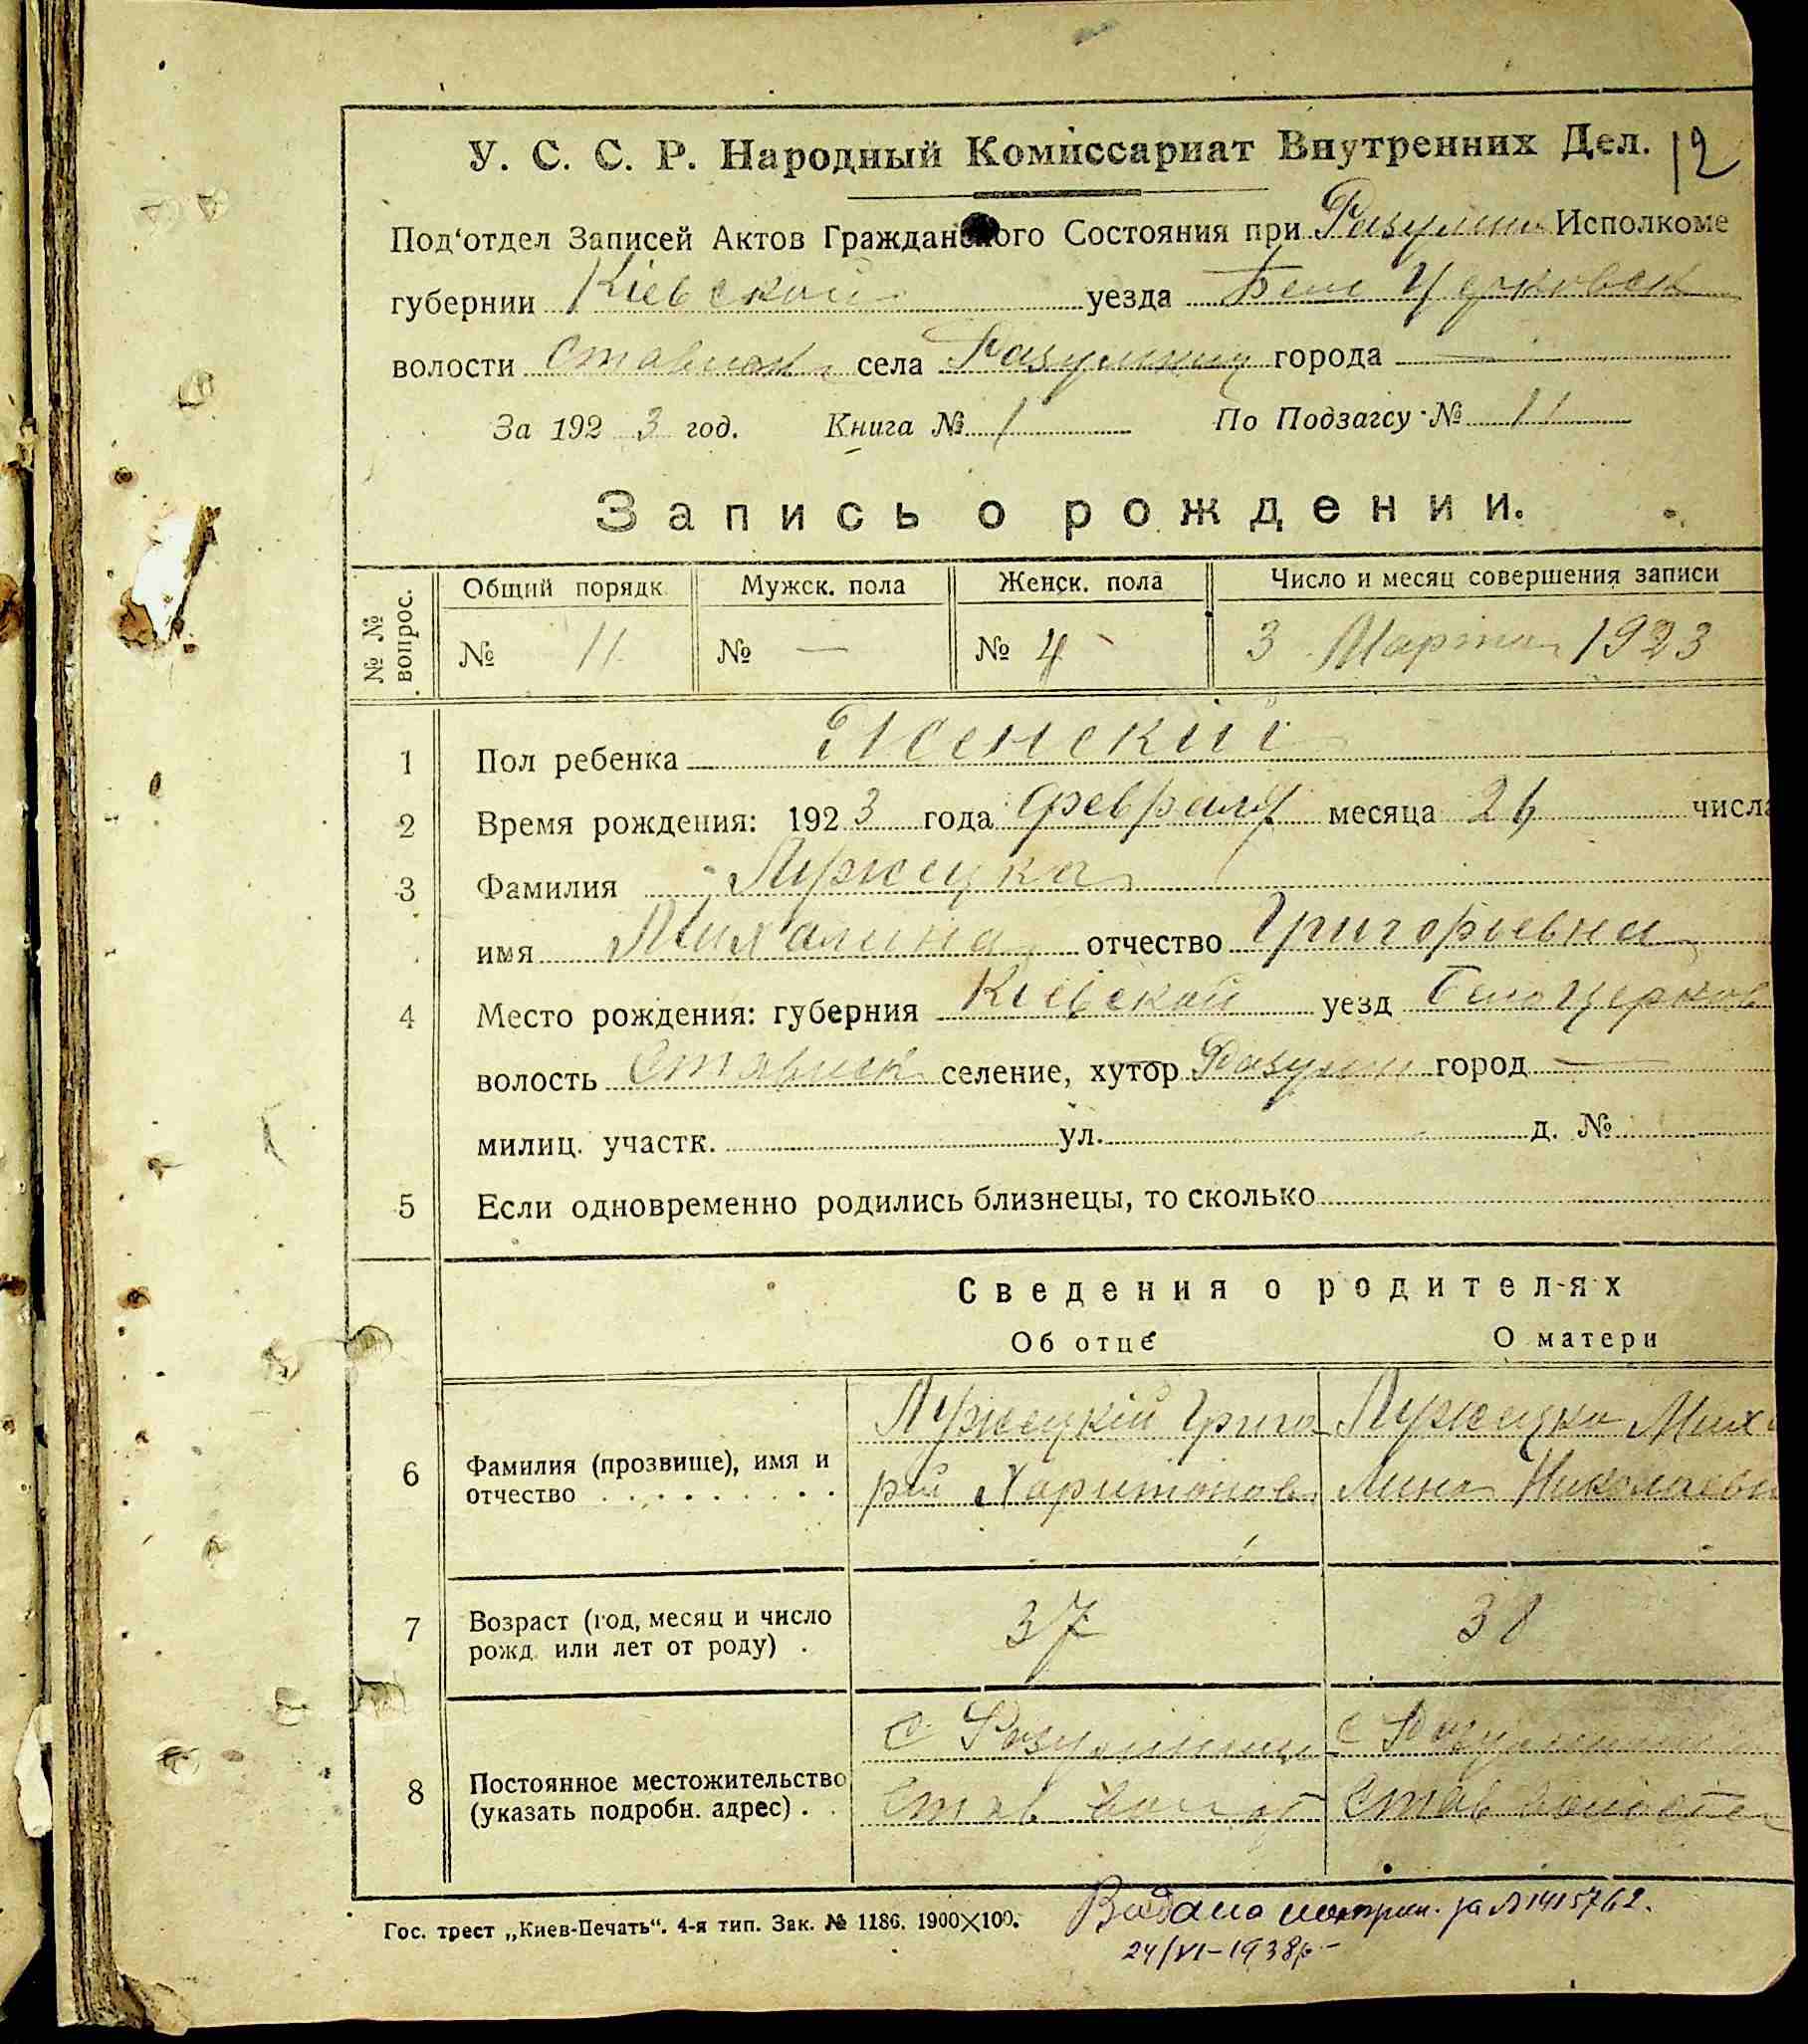 У. С. С. Р. Народный Комиссариат Внутренних Дел. 12
Под'отдел Записей Актов Гражданского Состояния при Разумни Исполкоме
губернии Кіевской уезда Бело Церковск
волости Стависк села города —
За 1923 год. Книга № 1 По Подзагсу № 11
Запись о рождении.
№ № вопрос. Общий порядк. Мужск. пола Женск. пола Число и месяц совершения записи
№ 11 № — № 4 3 Марта 1923
1 Пол ребенка Женский
2 Время рождения: 1923 года февраля месяца 26 числа
3 Фамилия Лужецка
имя Михалина отчество Григорьевна
4 Место рождения: губерния Кіевской уезд Белоцерков
волость Стависк селение, хутор город —
милиц. участк. ул. д. №
5 Если одновременно родились близнецы, то сколько
Сведения о родителях
Об отце О матери
6 Фамилия (прозвище), имя и отчество
Лужецкій Григо Лужецка Миха
рий Харитонов лина Николаевн
7 Возраст (год, месяц и число рожд. или лет от роду) . 37 38
8 Постоянное местожительство (указать подробн. адрес) . .
с с
Став волост Став волости
Гос. трест „Киев-Печать“. 4-я тип. Зак. № 1186. 1900×100.
Видано за №1415762.
24/VI-1938р-